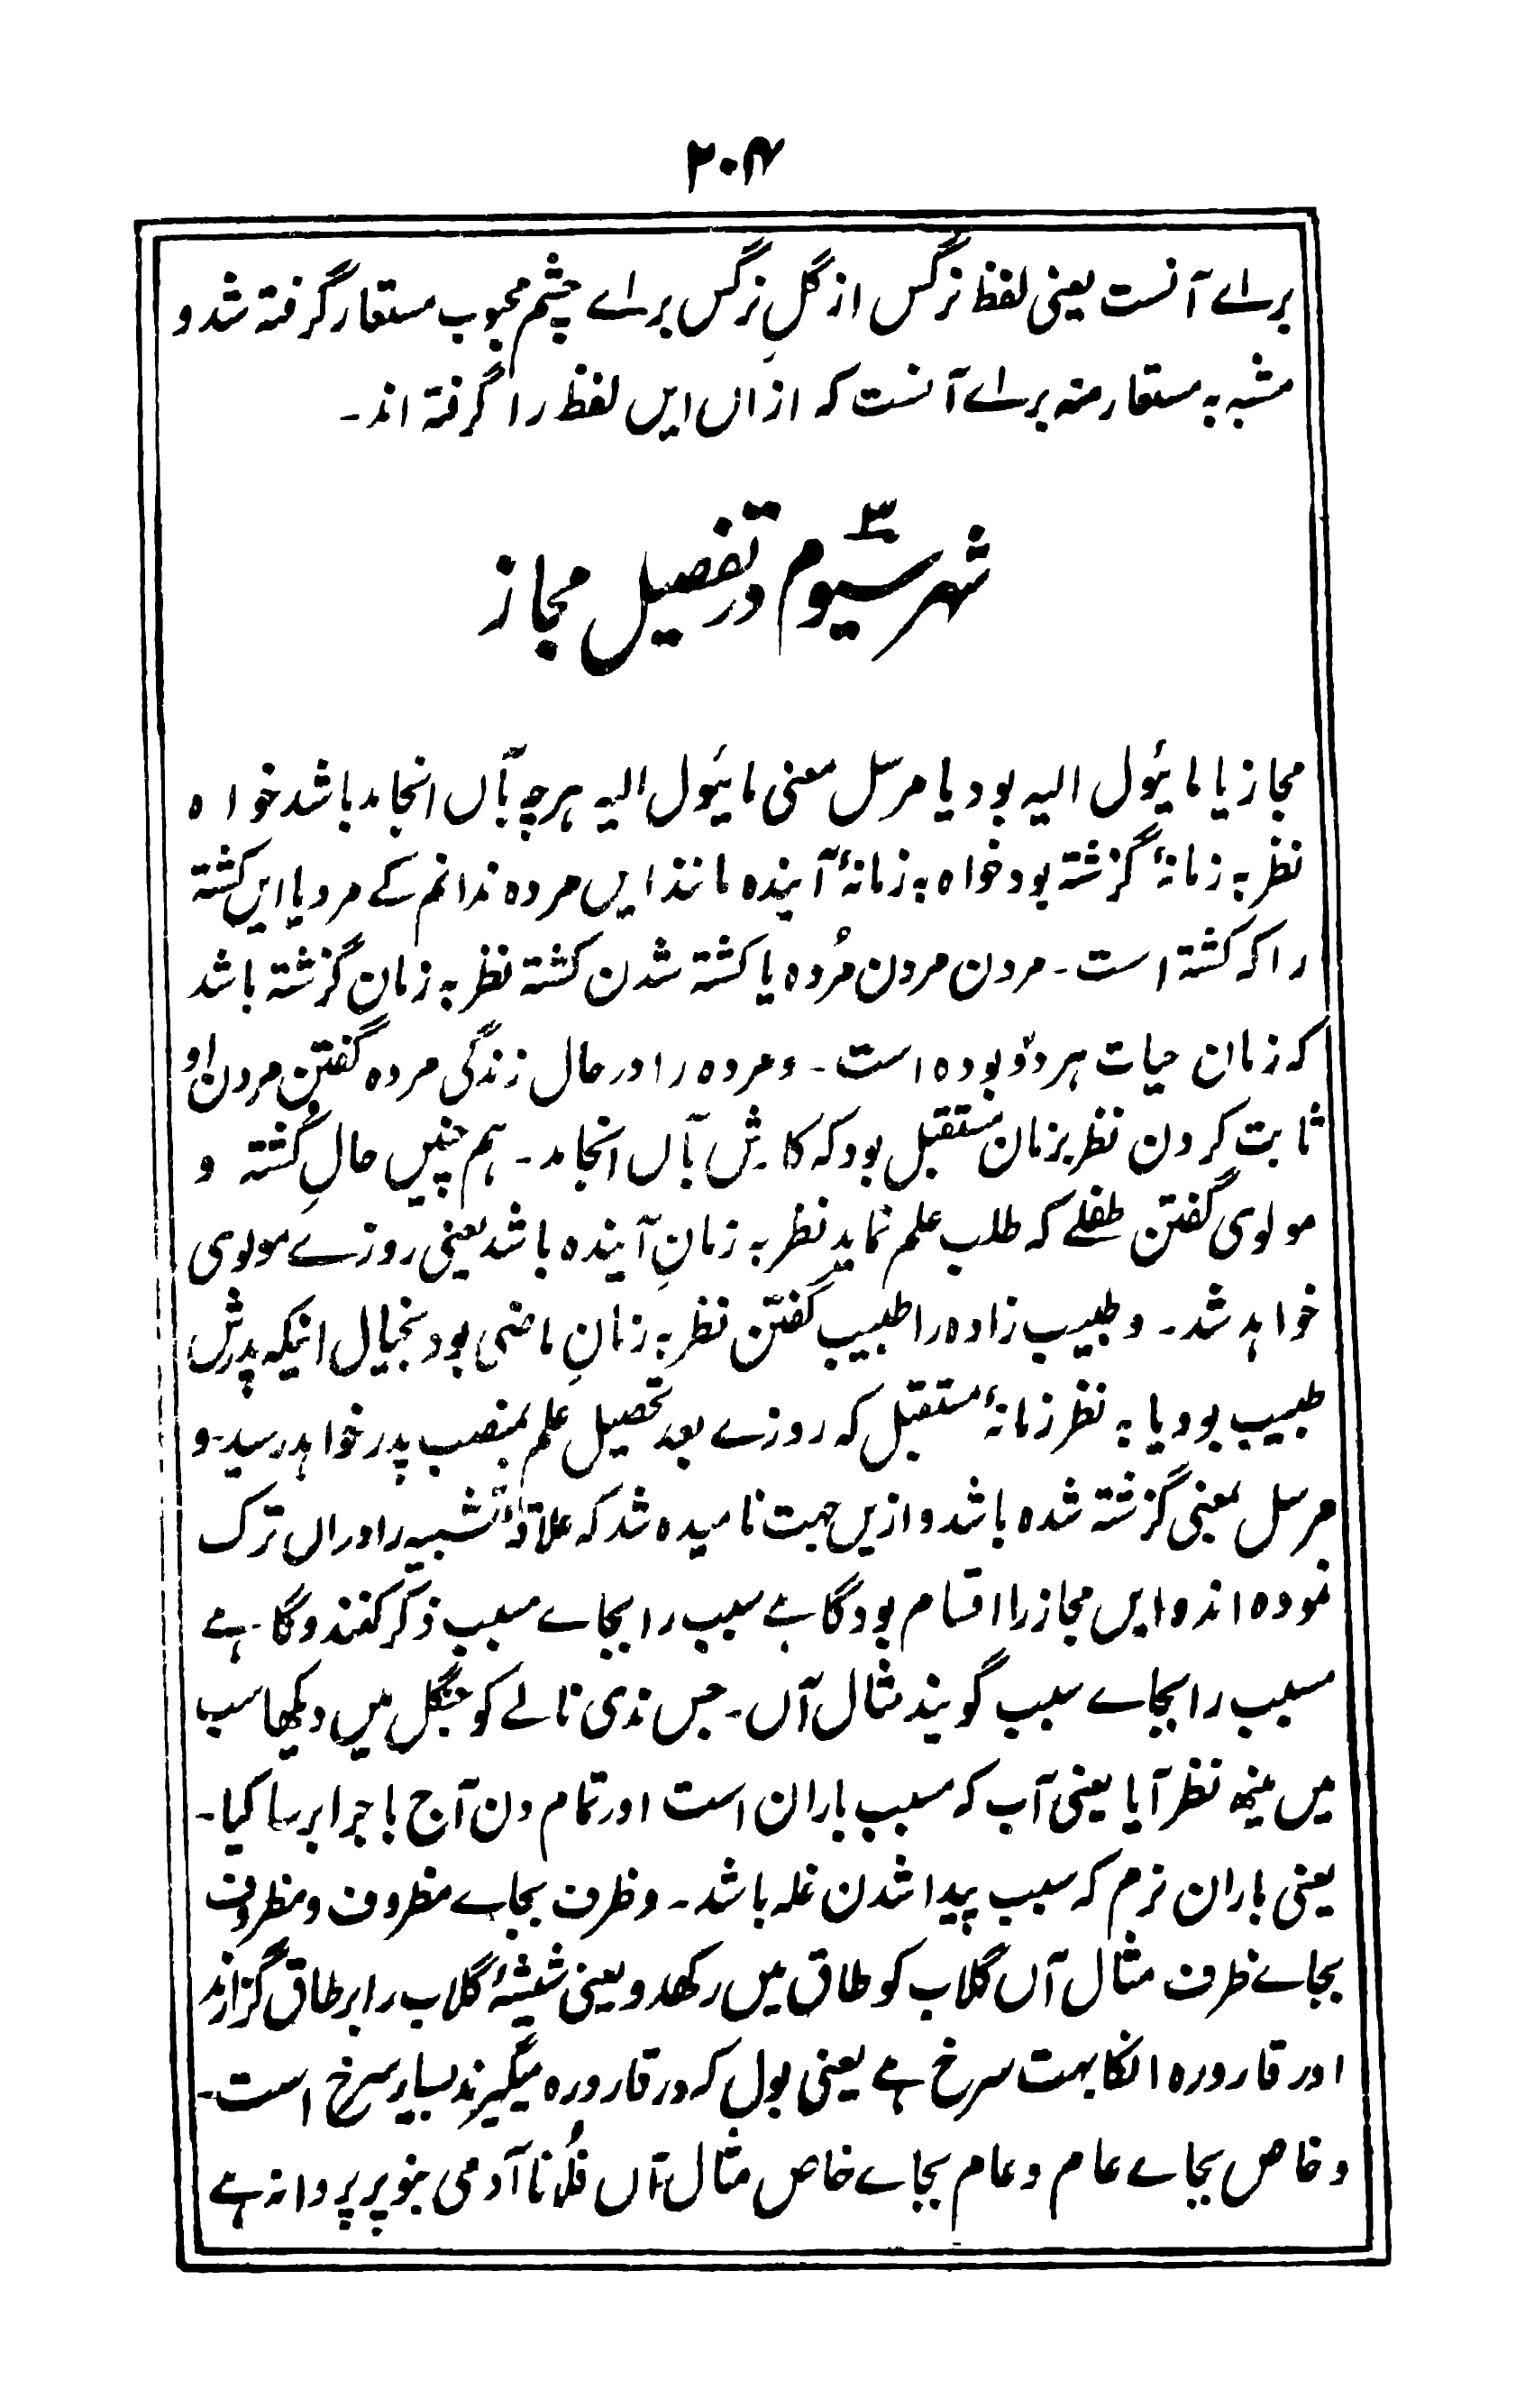 ۲۰۴
براے آنست یعنی لفظ نرگس از گلِ نرگس براے چشم محبوب مستعار گرفتہ شد و
مشبہ بہ مستعار منہ براے آنست کہ ازاں ایں لفظ را گرفتہ اند۔
شہر سیّوم ۳ در تفصیل مجاز
مجاز یا مایئول الیہ بود یا مرسل معنی مایئول الیہ ہرچہ بآں انجامد باشد خواہ
نظر بہ زمانۂ گزشتہ بود خواہ بہ زمانۂ آیندہ مانند ایں مردہ ندانم کے مرد یا ایں کشتہ
را کہ کشتہ است۔ مردن مردن مُردہ یا کشتہ شدن کشتہ نظر بہ زمان گزشتہ باشد
کہ زمان حیات ہر دو بودہ است۔ و مردہ را در حال زندگی مردہ گفتن مردن او
ثابت کردن نظر بزمان مستقبل بود کہ کارش بآں انجامد۔ ہم چنیں حالِ کُشتہ و
مولوی گفتن طفلے کہ طلب علم نماید نظر بہ زمانِ آیندہ باشد یعنی روزے مولوی
خواہد شد۔ و طبیب زادہ را طبیب گفتن نظر بہ زمانِ ماضی بود بخیال اینکہ پدرش
طبیب بود یا بہ نظر زمانۂ مستقبل کہ روزے بعد تحصیل علم بمنصب پدر خواہد رسید۔ و
مرسل بمعنی گزشتہ شدہ باشد و ازیں جہت نامیدہ شد کہ علاقۂ تشبیہ را دراں ترک
نمودہ اند و ایں مجاز را اقسام بود گاہے سبب را بجاے مسبب ذکر کنند و گاہے
مسبب را بجاے سبب گویند مثال آں۔ جس ندی نالے کو جنگل میں دیکھا سب
میں مینھ نظر آیا یعنی آب کہ مسبب باران است اور تمام دن آج باجرا برسا کیا۔
یعنی باران نرم کہ سبب پیدا شدن غلہ باشد۔ و ظرف بجاے مظروف و مظروف
بجاے ظرف مثال آں گلاب کو طاق میں رکھدو یعنی شیشۂ گلاب را بر طاق گزارند
اور قارورہ انکا بہت سرخ ہے یعنی بول کہ در قارورہ میگیرند بسیار سرخ است۔
و خاص بجاے عام و عام بجاے خاص مثال آں فُلانا آدمی جنو پر پروانہ ہے